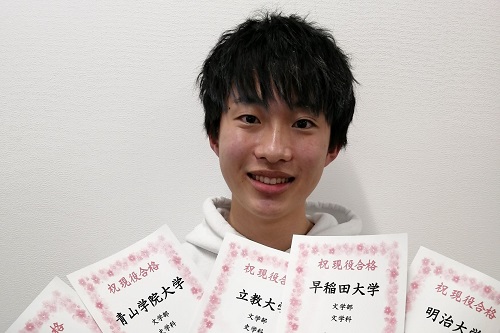 祝現役合格
青山学院大学
文学部
史学科
祝現役合格
立教大
文学部
史学科
祝現役合格
早稲田大学
文学部
文学科
祝現役合格
明治大学
文学
史学